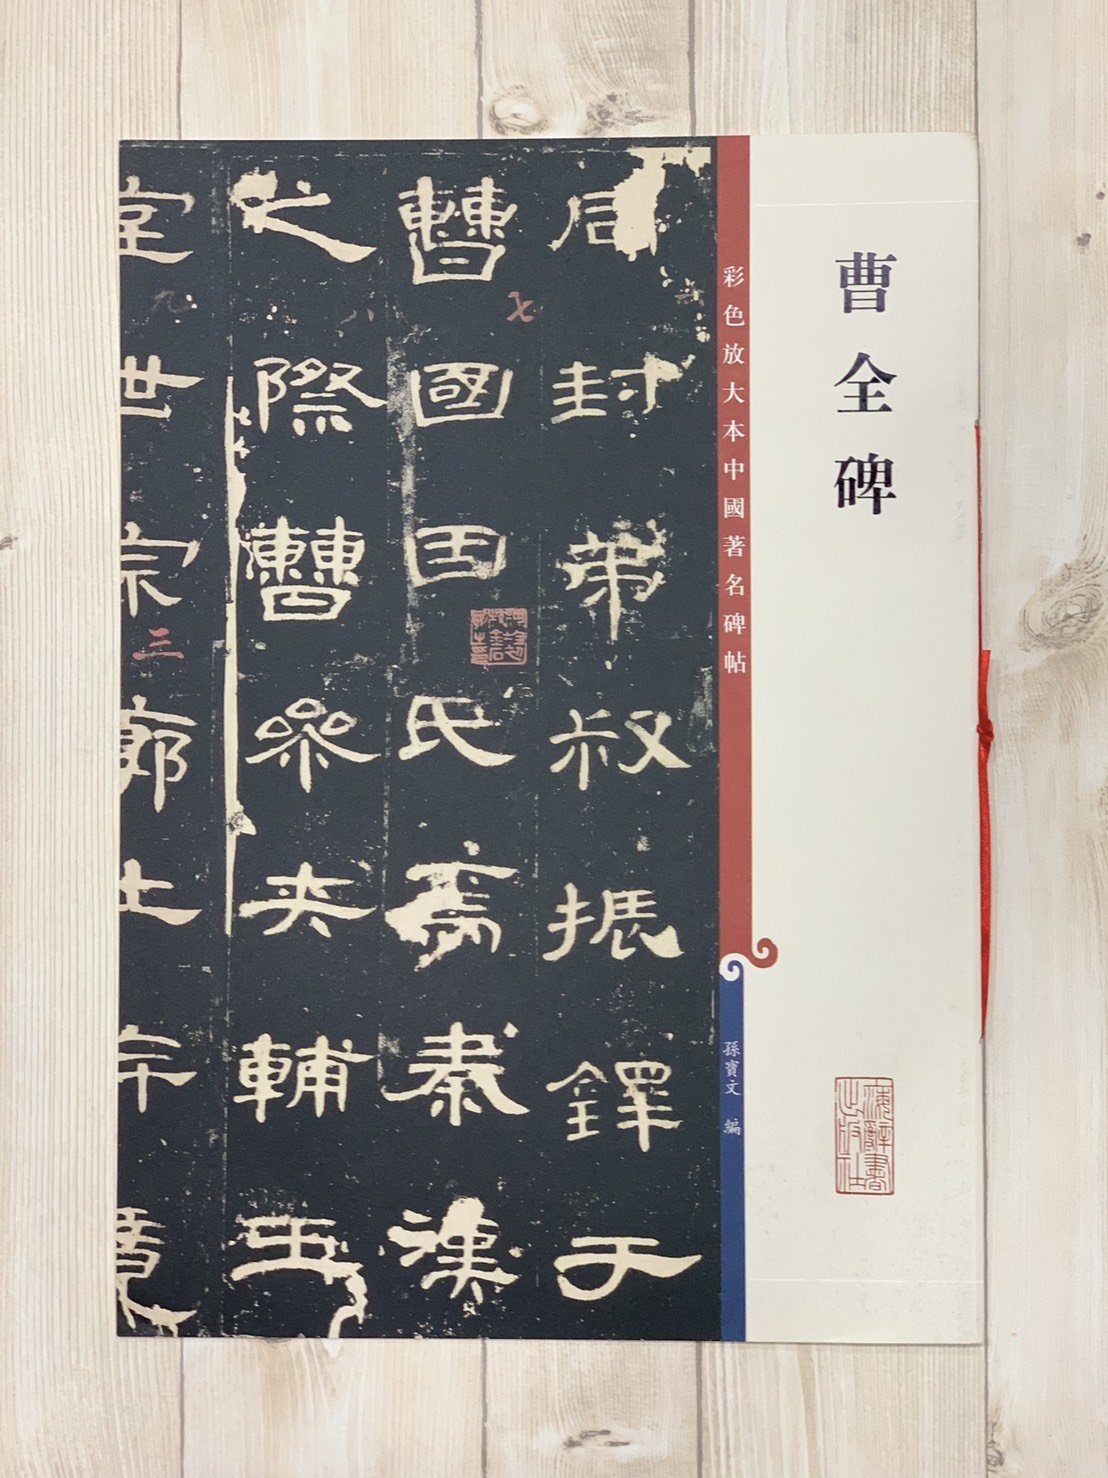 曹全碑
彩色放大本中國著名碑帖
孫寶文 編
海辭書
出版社
同封弟叔振鐸于
曹國因氏焉秦漢
之際曹參夾輔王
室世宗廓土斥竟
七
八
九
三